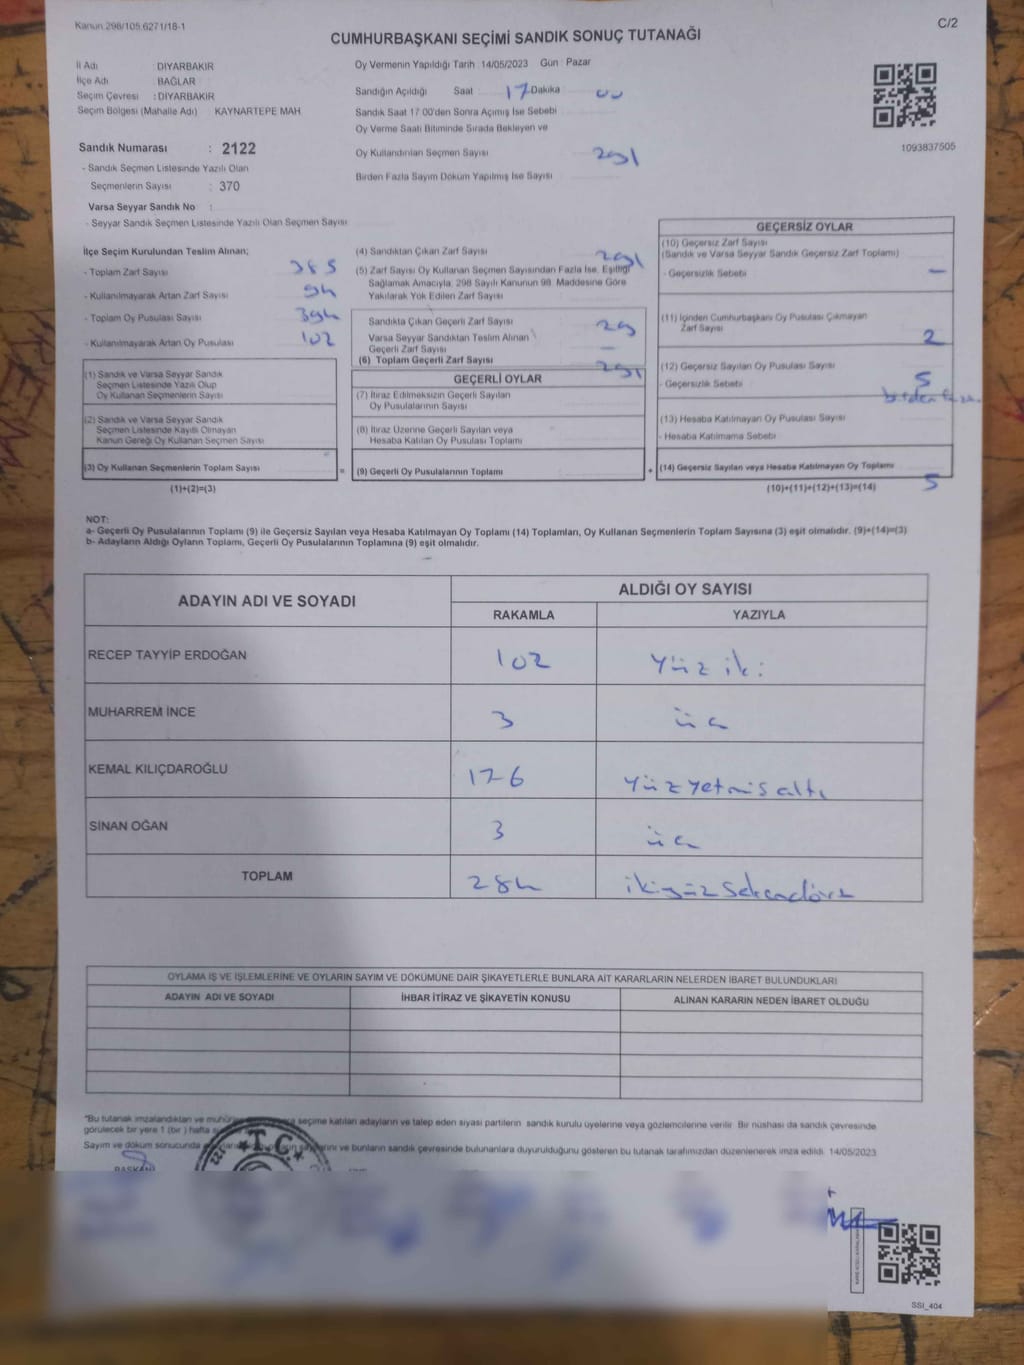 Kanun 298/105 6271/18-1
C/2
CUMHURBAŞKANI SEÇİMİ SANDIK SONUÇ TUTANAĞI
İl Adı : DİYARBAKIR
İlçe Adı : BAĞLAR
Seçim Çevresi : DİYARBAKIR
Seçim Bölgesi (Mahalle Adı) : KAYNARTEPE MAH
Sandık Numarası : 2122
- Sandık Seçmen Listesinde Yazılı Olan
Seçmenlerin Sayısı : 370
Varsa Seyyar Sandık No :
- Seyyar Sandık Seçmen Listesinde Yazılı Olan Seçmen Sayısı
Oy Vermenin Yapıldığı Tarih 14/05/2023 Gün : Pazar
Sandığın Açıldığı Saat 17 Dakika 00
Sandık Saat 17 00'den Sonra Açımış İse Sebebi
Oy Verme Saati Bitiminde Sırada Bekleyen ve
Oy Kullandırılan Seçmen Sayısı 291
Birden Fazla Sayım Döküm Yapılmış İse Sayısı
1093837505
İlçe Seçim Kurulundan Teslim Alınan;
- Toplam Zarf Sayısı 385
- Kullanılmayarak Artan Zarf Sayısı 94
- Toplam Oy Pusulası Sayısı 394
- Kullanılmayarak Artan Oy Pusulası 102
(1) Sandık ve Varsa Seyyar Sandık
Seçmen Listesinde Yazılı Olup
Oy Kullanan Seçmenlerin Sayısı
(2) Sandık ve Varsa Seyyar Sandık
Seçmen Listesinde Kayıtlı Olmayan
Kanun Gereği Oy Kullanan Seçmen Sayısı
(3) Oy Kullanan Seçmenlerin Toplam Sayısı
(1)+(2)=(3)
=
(4) Sandıktan Çıkan Zarf Sayısı 291
(5) Zarf Sayısı Oy Kullanan Seçmen Sayısından Fazla İse, Eşitliği
Sağlamak Amacıyla, 298 Sayılı Kanunun 98. Maddesine Göre
Yakılarak Yok Edilen Zarf Sayısı
Sandıkta Çıkan Geçerli Zarf Sayısı 29
Varsa Seyyar Sandıktan Teslim Alınan
Geçerli Zarf Sayısı –
(6) Toplam Geçerli Zarf Sayısı 291
GEÇERLİ OYLAR
(7) İtiraz Edilmeksizin Geçerli Sayılan
Oy Pusulalarının Sayısı
(8) İtiraz Üzerine Geçerli Sayılan veya
Hesaba Katılan Oy Pusulası Toplamı
(9) Geçerli Oy Pusulalarının Toplamı
+
GEÇERSİZ OYLAR
(10) Geçersiz Zarf Sayısı
(Sandık ve Varsa Seyyar Sandık Geçersiz Zarf Toplamı)
- Geçersizlik Sebebi –
(11) İçinden Cumhurbaşkanı Oy Pusulası Çıkmayan
Zarf Sayısı 2
(12) Geçersiz Sayılan Oy Pusulası Sayısı 5
- Geçersizlik Sebebi birden
(13) Hesaba Katılmayan Oy Pusulası Sayısı
- Hesaba Katılmama Sebebi
(14) Geçersiz Sayılan veya Hesaba Katılmayan Oy Toplamı 5
(10)+(11)+(12)+(13)=(14)
NOT:
a- Geçerli Oy Pusulalarının Toplamı (9) ile Geçersiz Sayılan veya Hesaba Katılmayan Oy Toplamı (14) Toplamları, Oy Kullanan Seçmenlerin Toplam Sayısına (3) eşit olmalıdır. (9)+(14)=(3)
b- Adayların Aldığı Oyların Toplamı, Geçerli Oy Pusulalarının Toplamına (9) eşit olmalıdır.
ADAYIN ADI VE SOYADI ALDIĞI OY SAYISI
RAKAMLA YAZIYLA
RECEP TAYYİP ERDOĞAN 102 yüz iki
MUHARREM İNCE 3 üç
KEMAL KILIÇDAROĞLU 176 yüz yetmiş altı
SİNAN OĞAN 3 üç
TOPLAM 284 ikiyüz seksendört
OYLAMA İŞ VE İŞLEMLERİNE VE OYLARIN SAYIM VE DÖKÜMÜNE DAİR ŞİKAYETLERLE BUNLARA AİT KARARLARIN NELERDEN İBARET BULUNDUKLARI
ADAYIN ADI VE SOYADI İHBAR İTİRAZ VE ŞİKAYETİN KONUSU ALINAN KARARIN NEDEN İBARET OLDUĞU
"Bu tutanak imzalandıktan ve seçime katılan adayların ve talep eden siyasi partilerin sandık kurulu üyelerine veya gözlemcilerine verilir. Bir nüshası da sandık çevresinde
görülecek bir yere 1 (bir) hafta
Sayım ve döküm sonucunda ve bunların sandık çevresinde bulunanlara duyurulduğunu gösteren bu tutanak tarafımızdan düzenlenerek imza edildi. 14/05/2023
T.C.
BAŞKAN
SSI_404